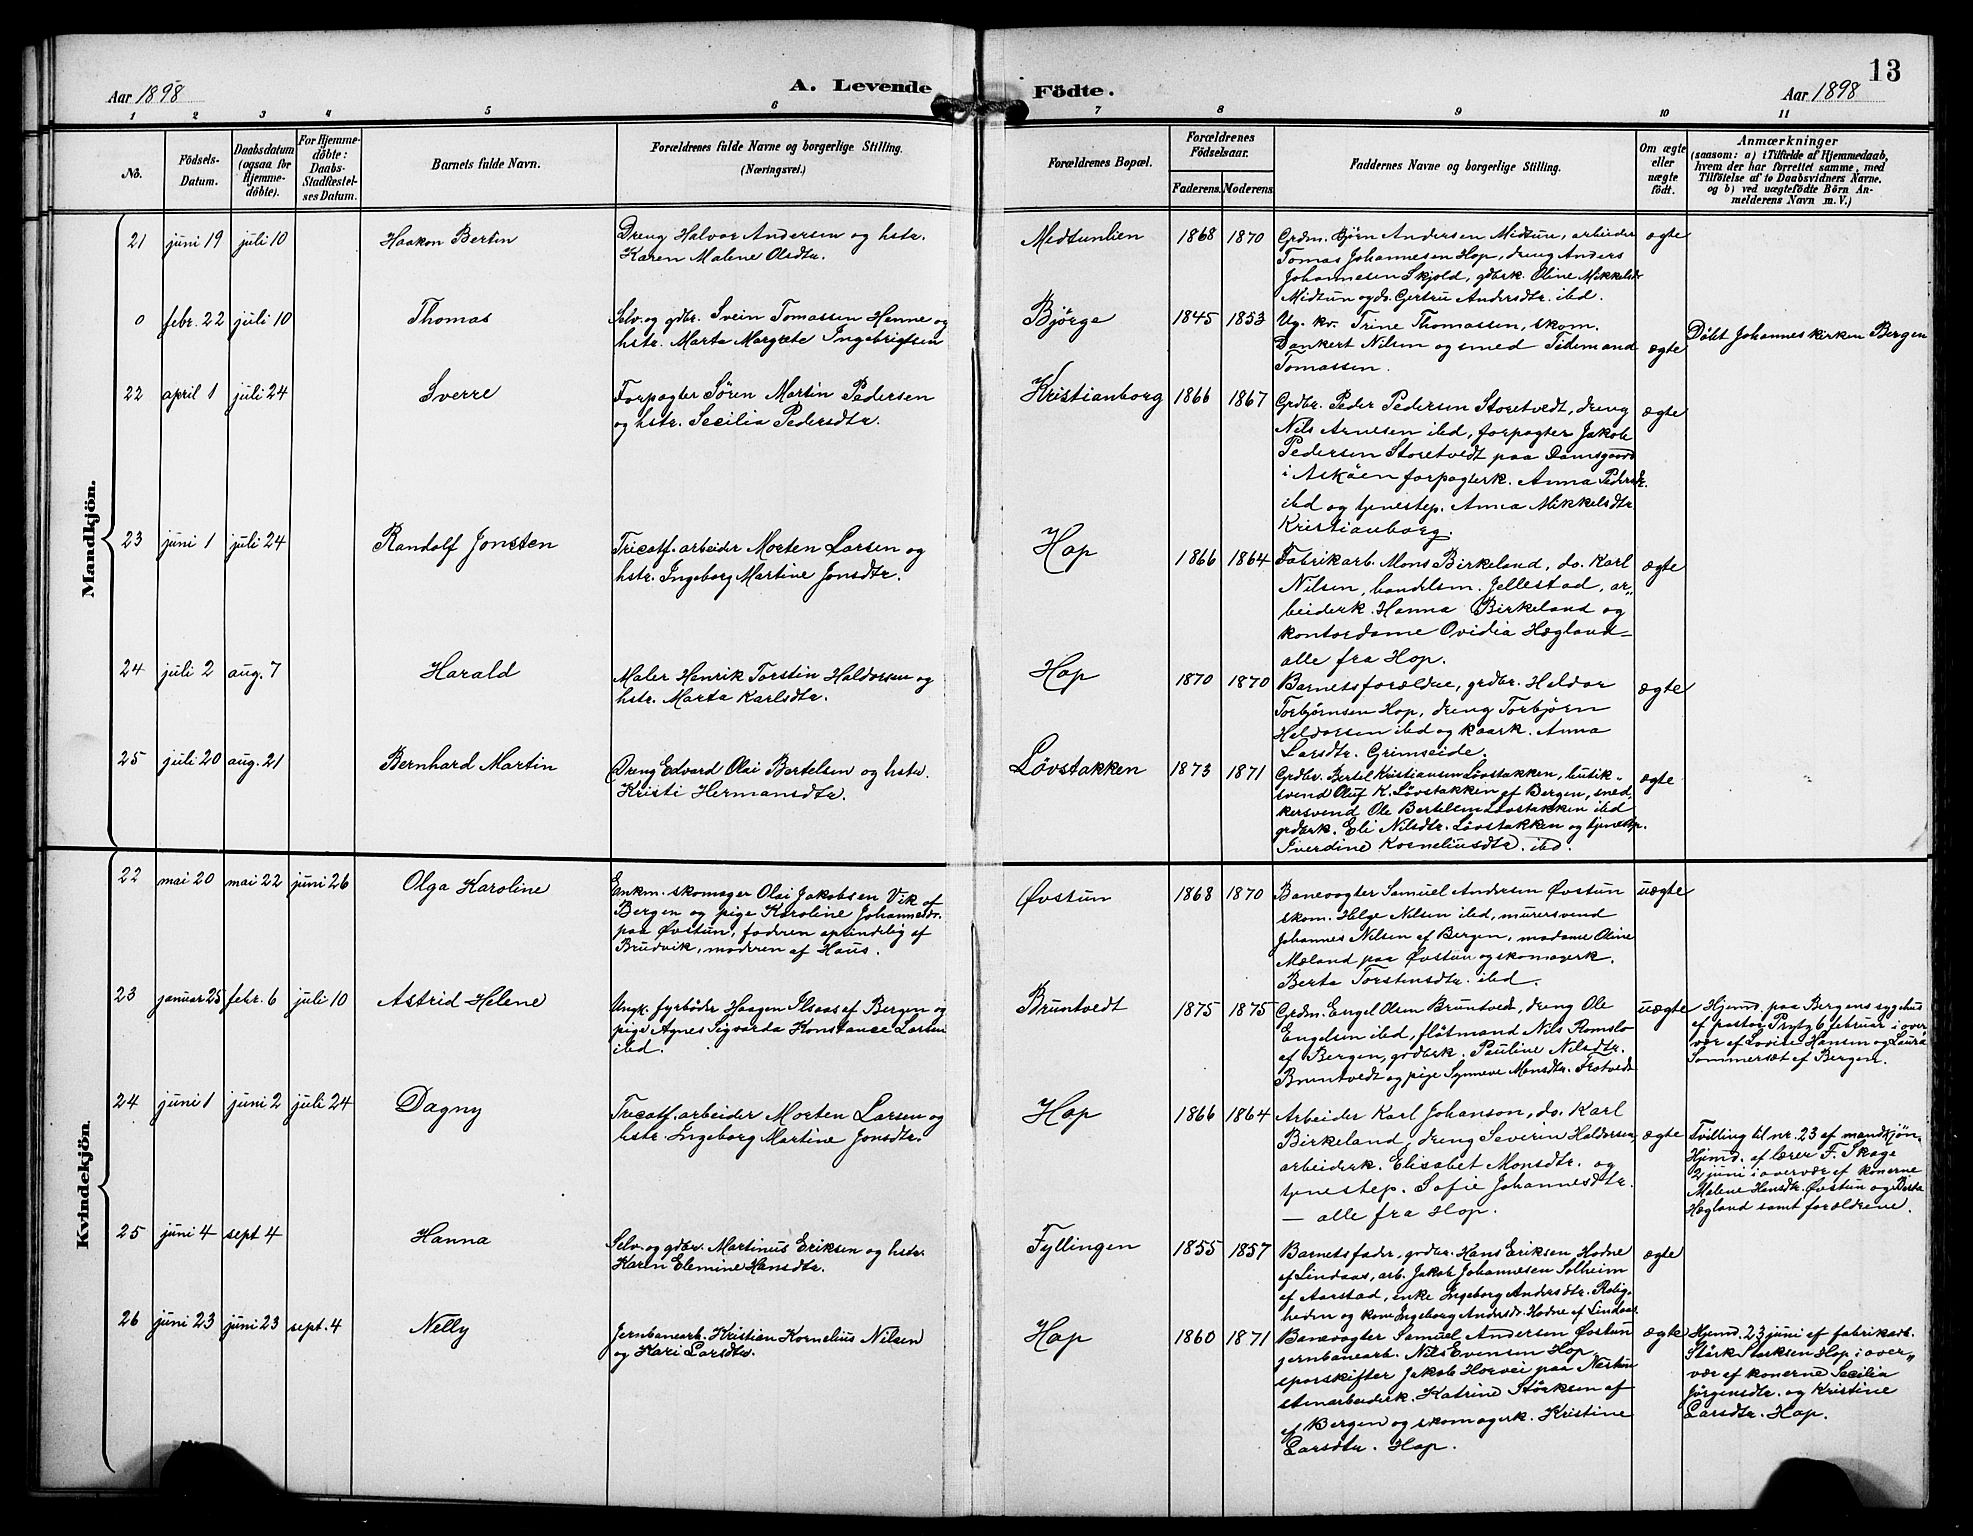 13
Aar 1898
A. Levende
Födte.
Aar 1898
1 2 3 4 5 6 7 8 9 10 11
No.
Födsels-
Datum.
Daabsdatum
(ogsaa for
Hjemme-
döbte).
For Hjemme-
döbte:
Daabs-
Stadfæstel-
ses Datum.
Barnets fulde Navn.
Forældrenes fulde Navne og borgerlige Stilling.
(Næringsvei.)
Forældrenes Bopæl.
Forældrenes
Födselsaar.
Faderens. Moderens.
Faddernes Navne og borgerlige Stilling.
Om ægte
eller
uægte
födt.
Anmærkninger
(saasom: a) i Tilfælde af Hjemmedaab,
hvem der har forrettet samme, med
Tilföielse af to Daabsvidners Navne,
og b) ved uægtefödte Börn An-
melderens Navn m. V.)
Mandkjön.
21 juni 19 juli 10
Haakon Bertin
Dreng Halvor Andersen og hstr.
Karen Malene Olsdtr.
Midtunlien
1868 1870
Grdm. Bjørn Andersen Midtun, arbeider
Tomas Johannesen Hop, dreng Anders
Johannesen Skjold, gdbrk. Oline Mikkelsdtr
Midtun og ds. Gertru Andersdtr. ibd.
ægte
0 febr. 22 juli 10
Thomas
Selv. og gdbr. Svein Tomassen Henne og
hstr. Marta Margrete Ingebrigtsen
Björge
1845 1853
Ug. kv. Trine Thomassen, skom.
Dankert Nilsen og smed Tidemand
Tomassen.
ægte
Döbt Johanneskirken Bergen
22 april 1 juli 24
Sverre
Forpagter Søren Martin Pedersen
og hstr. Secilia Pedersdtr.
Kristianborg
1866 1867
Grdbr. Peder Pedersen Storetvedt, dreng
Nils Arnesen ibd, forpagter Jakob
Pedersen Storetvedt paa Damsgaard
i Askøen forpagterk. Anna Pedersdtr.
ibd og tjenestep. Anna Mikkelsdtr
Kristianborg.
ægte
23 juni 1 juli 24
Randolf Jonsten
Tricotf. arbeider Morten Larsen og
hstr. Ingeborg Martine Jonsdtr.
Hop
1866 1864
Fabrikarb. Mons Birkeland, do. Karl
Nilsen, handelsm. Jellestad, ar-
beiderk. Hanna Birkeland og
kontordame Ovidia Hægland -
alle fra Hop.
ægte
24 juli 2 aug. 7
Harald
Maler Henrik Torstin Haldorsen og
hstr. Marta Karlsdtr.
Hop
1870 1870
Barnets forældre, grdbr. Haldor
Torbjørnsen Hop, dreng Torbjörn
Haldorsen ibd og kaark. Anna
Larsdtr. Grimseide.
ægte
25 juli 20 aug. 21
Bernhard Martin
Dreng Edvard Olai Bertelsen og hstr.
Kristi Hermansdtr.
Løvstakken
1873 1871
Grdbr. Bertel Kristiansen Løvstakken, butik-
svend Oluf K. Løvstakken af Bergen, sned,
kersvend Ole Bertelsen Løvstakken ibd
grdbrk. Eli Nilsdtr. Løvstakken og tjenestp.
Iverdine Korneliusdtr. ibd.
ægte
Kvindekjön.
22 mai 20 mai 22 juni 26
Olga Karoline
Enkm. skomager Olai Jakobsen Vik af
Bergen og pige Karoline Johannesdr.
paa Øvstun, faderen oprindelig af
Brudvik, moderen af Haus.
Øvstun
1868 1870
Banevogter Samuel Andersen Øvstun
skom. Helge Nilsen ibd, murersvend
Johannes Nilsen af Bergen, madame Oline
Mæland paa Øvstun og skomagerk.
Berta Torstensdtr. ibd.
uægte
23 januar 25 febr. 6 juli 10
Astrid Helene
Ungk. fyrbøder Haagen Ilsaas af Bergen og
pige Agnes Sigvarda Konstance Larsen
ibd.
Bruntvedt
1875 1875
Grdm. Engel Olsen Bruntvedt, dreng Ole
Engelsen ibd, flåtmand Nils Romslo
af Bergen, grdbrk. Pauline Nilsdtr.
Bruntvedt og pige Synneve Monsdtr. Trotvedt
uægte
Hjemd. paa Bergens sygehus
af pastor Prytz 6 februar i over-
vær af Lovise Hansen og Laura
Sommersæt af Bergen.
24 juni 1 juni 2 juli 24
Dagny
Tricotf. arbeider Morten Larsen og
hstr. Ingeborg Martine Jonsdtr.
Hop
1866 1864
Arbeider Karl Johanson, do. Karl
Birkeland, dreng Severin Haldorsen,
arbeiderk. Elisabet Monsdtr. og
tjenestep. Sofie Johannesdtr.
— alle fra Hop.
ægte
Tvilling til nr. 23 af mandkjön.
Hjemd. af lærer F. Skage
2 juni i overvær af konerne
Malene Hansdtr. Øvstun og Berta
Hægland samt forældrene.
25 juni 4 sept 4
Hanna
Selv. og gdbr. Martinus Eriksen og hstr.
Karen Elemine Hansdtr.
Fyllingen
1855 1857
Barnets fader, grdbr. Hans Eriksen Hodne
af Lindaas, arb. Jakob Johannesen Solheim
af Aarstad, enke Ingeborg Andersdtr. Rolig-
heden og kone Ingeborg Andersdr. Hodne af Lindaas.
ægte
26 juni 23 juni 23 sept. 4
Nelly
Jernbanearb. Kristian Kornelius Nilsen
og Kari Larsdtr.
Hop
1860 1871
Banevogter Samuel Andersen Øvstun
jernbanearb. Nils Evensen Hop,
sporskifter Jakob Horvei paa Nestun
stenarbeiderk. Katrine Størksen af
af Bergen og skomagerk. Kristine
Larsdtr. Hop.
ægte
Hjemd. 23 juni af fabrikarb.
Størk Størksen Hop i over-
vær af konerne Secilia
Jørgensdtr. og Kristine
Larsdtr. Hop.